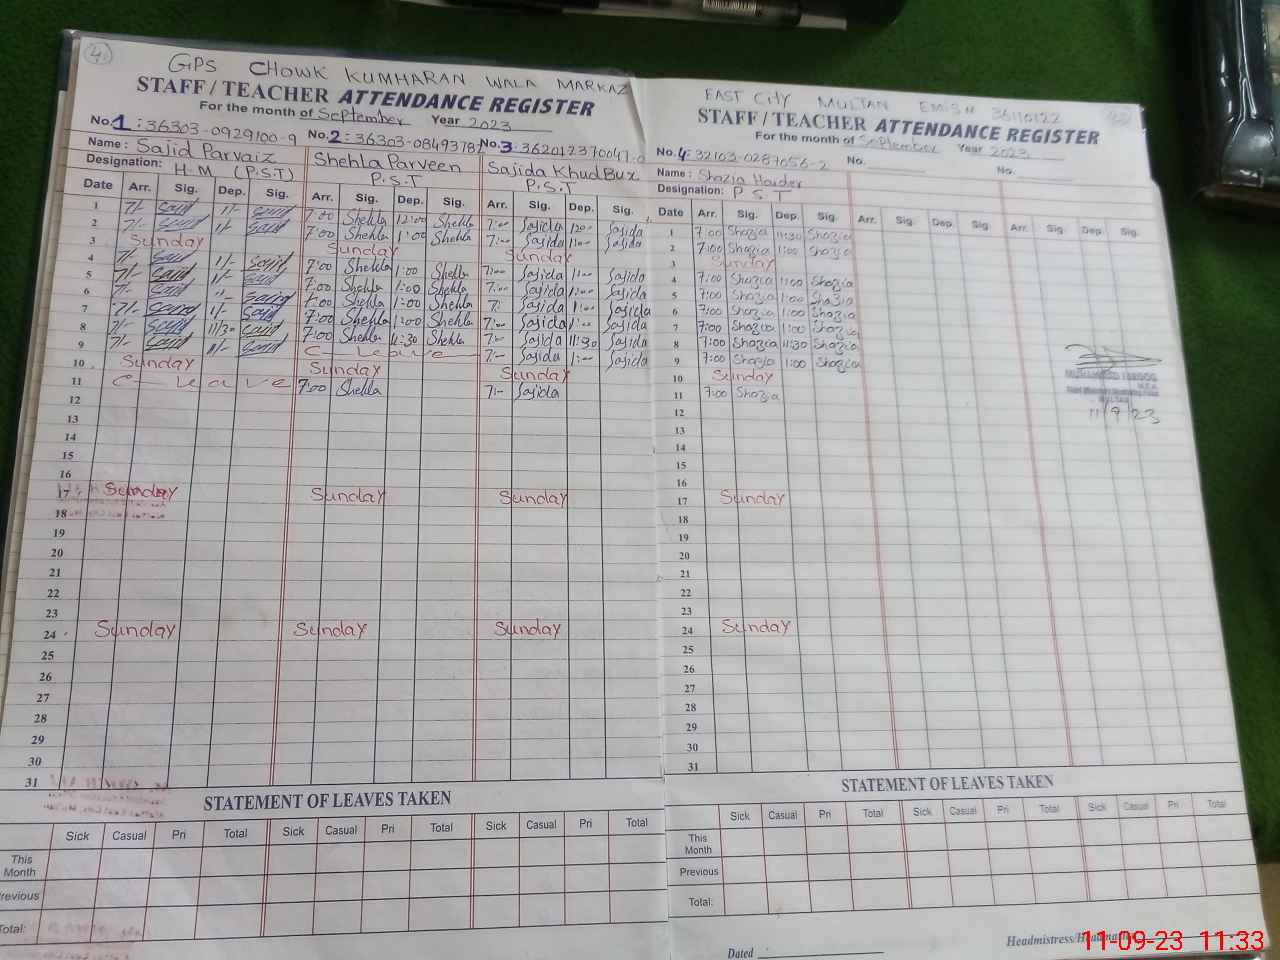 4
GPS CHOWK KUMHARAN WALA MARKAZ
STAFF / TEACHER ATTENDANCE REGISTER
For the month of September Year 2023
No. 1 : 36303-0929100-9 No. 2 : 36303-0849378 No. 3 : 36201237004
Name : Sajid Parvaiz Shehla Parveen Sajida KhudBux
Designation: H-M (P.S.T) P.S.T P.S.T
Date Arr. Sig. Dep. Sig. Arr. Sig. Dep. Sig. Arr. Sig. Dep. Sig.
1 7/- Sajid 1/- Sajid 7:00 Shehla 12:00 Shehla 7:-- Sajida Sajida
2 7/- Sajid 1/- Sajid 7:00 Shehla 1:00 Shehla 7:-- Sajida 1:-- Sajida
3 Sunday Sunday Sunday
4 7/- Sajid 1/- Sajid 7:00 Shehla 1:00 Shehla 7:-- Sajida 1:-- Sajida
5 7/- Sajid 1/- Sajid 7:00 Shehla 1:00 Shehla 7:-- Sajida 1:-- Sajida
6 7/- Sajid Sajid 7:00 Shehla 1:00 Shehla 7:-- Sajida 1:-- Sajida
7 7/- Sajid 1/- Sajid 7:00 Shehla 1:00 Shehla 7:-- Sajida 1:-- Sajida
8 7/- Sajid 11/30 Sajid 7:00 Shehla 11:30 Shehla 7:-- Sajida 11:30 Sajida
9 7/- Sajid 1/- Sajid C - Leave 7:-- Sajida 1:-- Sajida
10 Sunday Sunday Sunday
11 C - Leave 7:00 Shehla 7:-- Sajida
12
13
14
15
16
17 Sunday Sunday Sunday
18
19
20
21
22
23
24 Sunday Sunday Sunday
25
26
27
28
29
30
31
STATEMENT OF LEAVES TAKEN
Sick Casual Pri Total Sick Casual Pri Total Sick Casual Pri Total
This Month
Previous
Total:
EAST CITY MULTAN EMIS# 36110122
STAFF / TEACHER ATTENDANCE REGISTER
For the month of September Year 2023
No. 4 : 32103-0287056-2 No. No.
Name : Shazia Haider
Designation: P S T
Date Arr. Sig. Dep. Sig. Arr. Sig. Dep. Sig. Arr. Sig. Dep. Sig.
1 7:00 Shazia 11:30 Shazia
2 7:00 Shazia 1:00 Shazia
3 Sunday
4 7:00 Shazia 1:00 Shazia
5 7:00 Shazia 1:00 Shazia
6 7:00 Shazia 1:00 Shazia
7 7:00 Shazia 1:00 Shazia
8 7:00 Shazia 11:30 Shazia
9 7:00 Shazia 1:00 Shazia
10 Sunday
11 7:00 Shazia
11/9/23
12
13
14
15
16
17 Sunday
18
19
20
21
22
23
24 Sunday
25
26
27
28
29
30
31
STATEMENT OF LEAVES TAKEN
Sick Casual Pri Total Sick Casual Pri Total Sick Casual Pri Total
This Month
Previous
Total:
Dated
Headmistress/
11-09-23 11:33